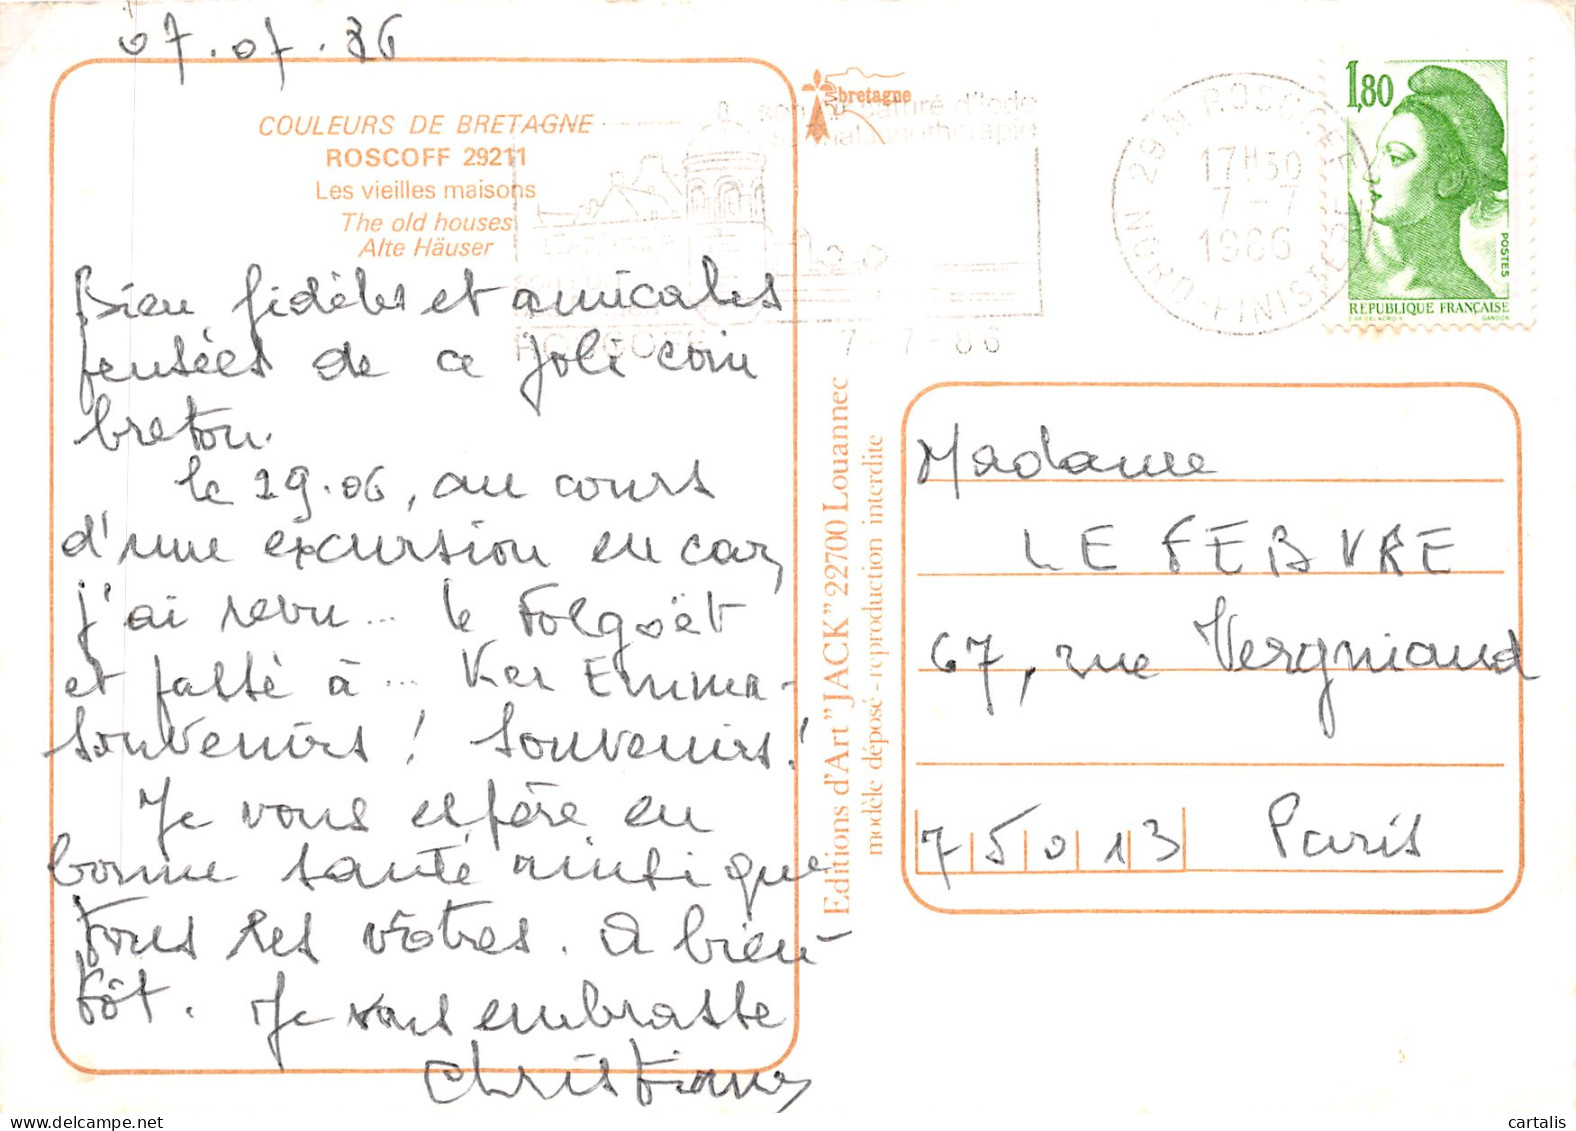 07.07.86
COULEURS DE BRETAGNE
ROSCOFF 29211
Les vieilles maisons
The old houses
Alte Häuser
Bien fidèles et amicales
pensées de ce joli coin
breton.
le 29.06, au cours
d'une excursion en car,
j'ai revu ... le Folgoët
et passé à ... Ker Emma -
souvenirs ! souvenirs !
Je vous espère en
bonne santé ainsi que
tous les vôtres. A bien-
tôt. Je vous embrasse
Christiane
bretagne
d'iode
thalassothérapie
ROSCOFF
7-7-86
29 N ROSCOFF
17H30
7-7
1986
NORD FINISTERE
1,80
POSTES
REPUBLIQUE FRANÇAISE
GANDON
Editions d'Art "JACK" 22700 Louannec
modèle déposé - reproduction interdite
Madame
LE FEBVRE
67, rue Vergniaud
75013 Paris
cartalis